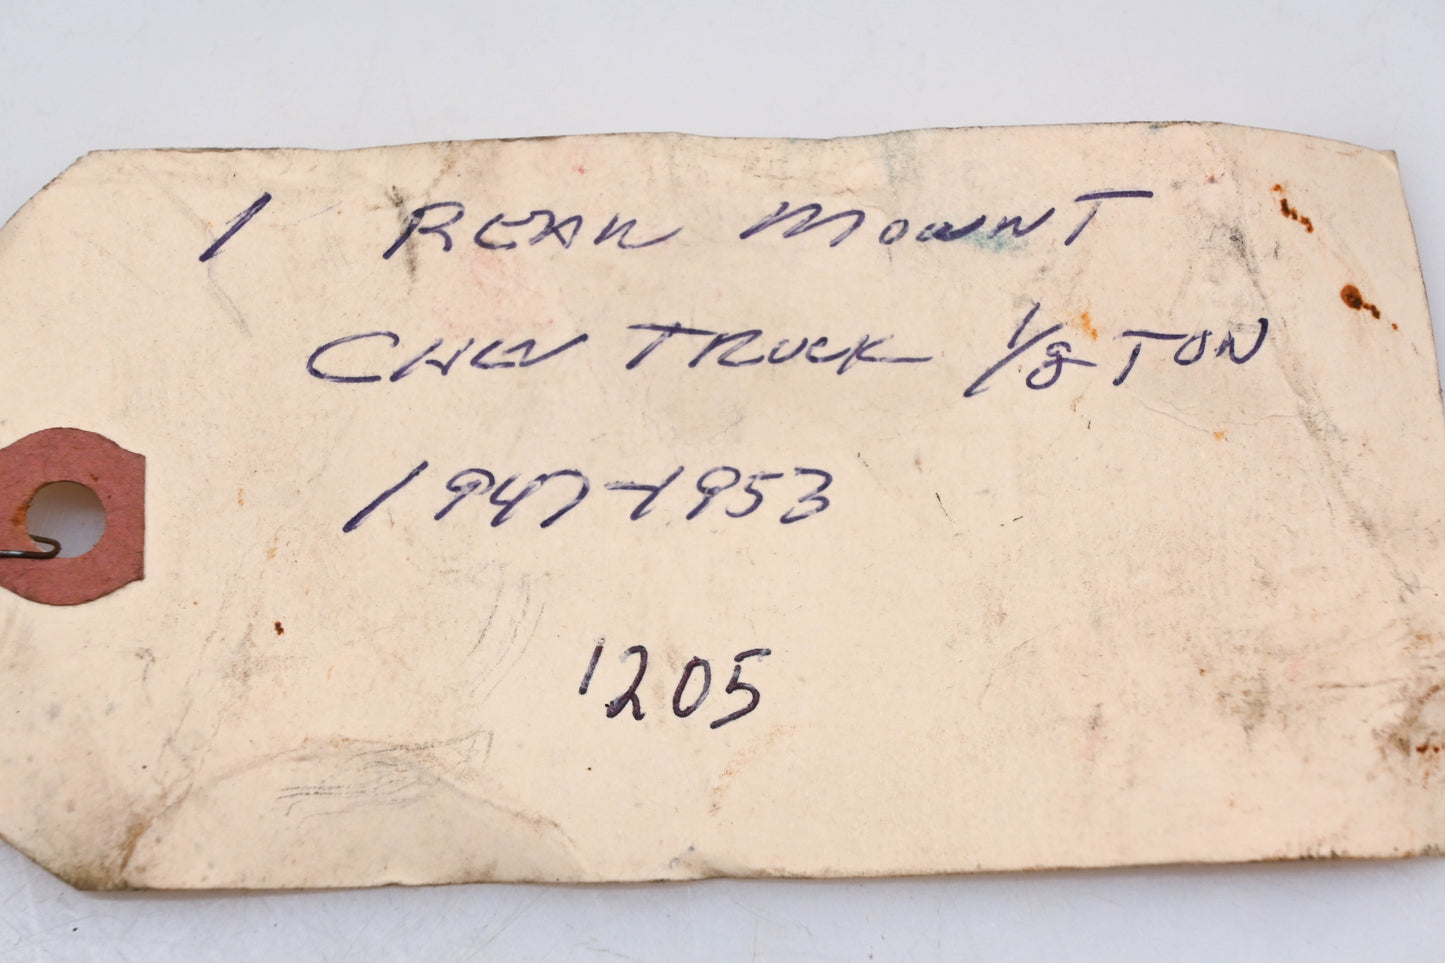 1 REAR MOUNT
CHEV TRUCK 1/8 TON
1947-1953
1205